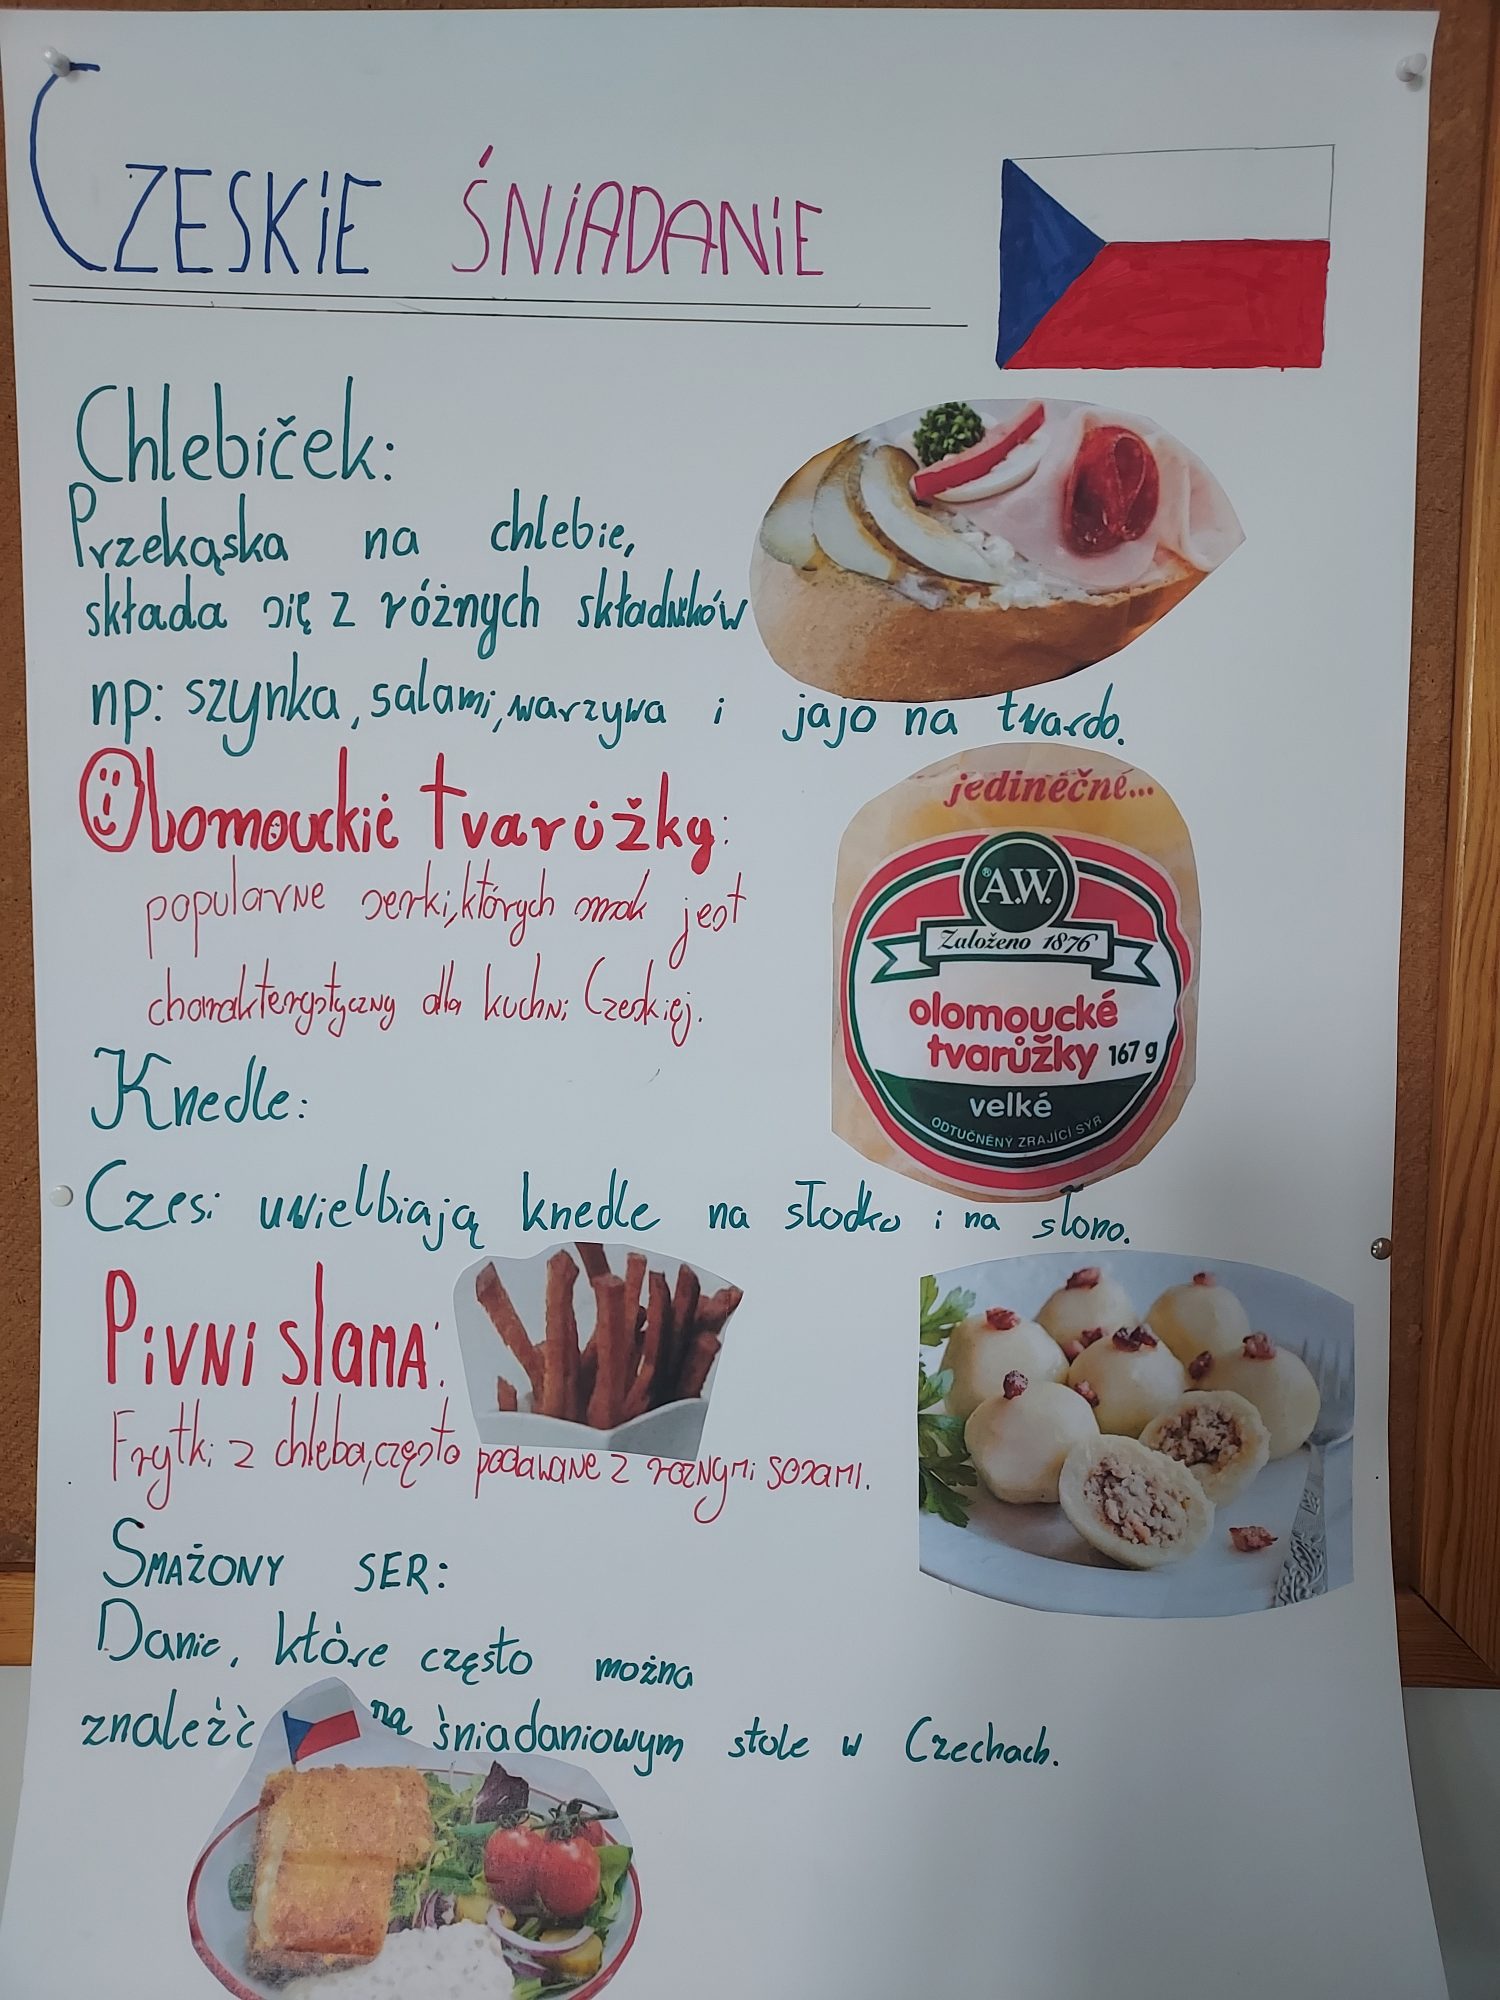 CZESKIE ŚNIADANIE
Chlebíček:
Przekąska na chlebie,
składa się z różnych składników
np: szynka, salami, warzywa i jajo na twardo.
Olomouckié tvarůžky:
popularne serki, których smak jest
charakterystyczny dla kuchni Czeskiej.
jedinečné...
A.W.
Založeno 1876
olomoucké
tvarůžky 167 g
velké
ODTUČNĚNÝ ZRAJÍCÍ SÝR
Knedle:
Czesi uwielbiają knedle na słodko i na słono.
Pivni slama:
Frytki z chleba, często podawane z roznymi sosami.
SMAŻONY SER:
Danie, które często można
znaleźć na śniadaniowym stole w Czechach.